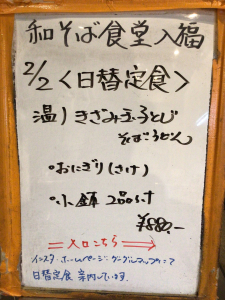 和そば食堂入福
2/2<日替定食>
温)きざみ玉子とじ
そばうどん
・おにぎり(さけ)
・小鉢 2品付
¥880.-
=入口こちら⇒
インスタ・ホームページ・グーグルマップにて
日替定食 案内しています。